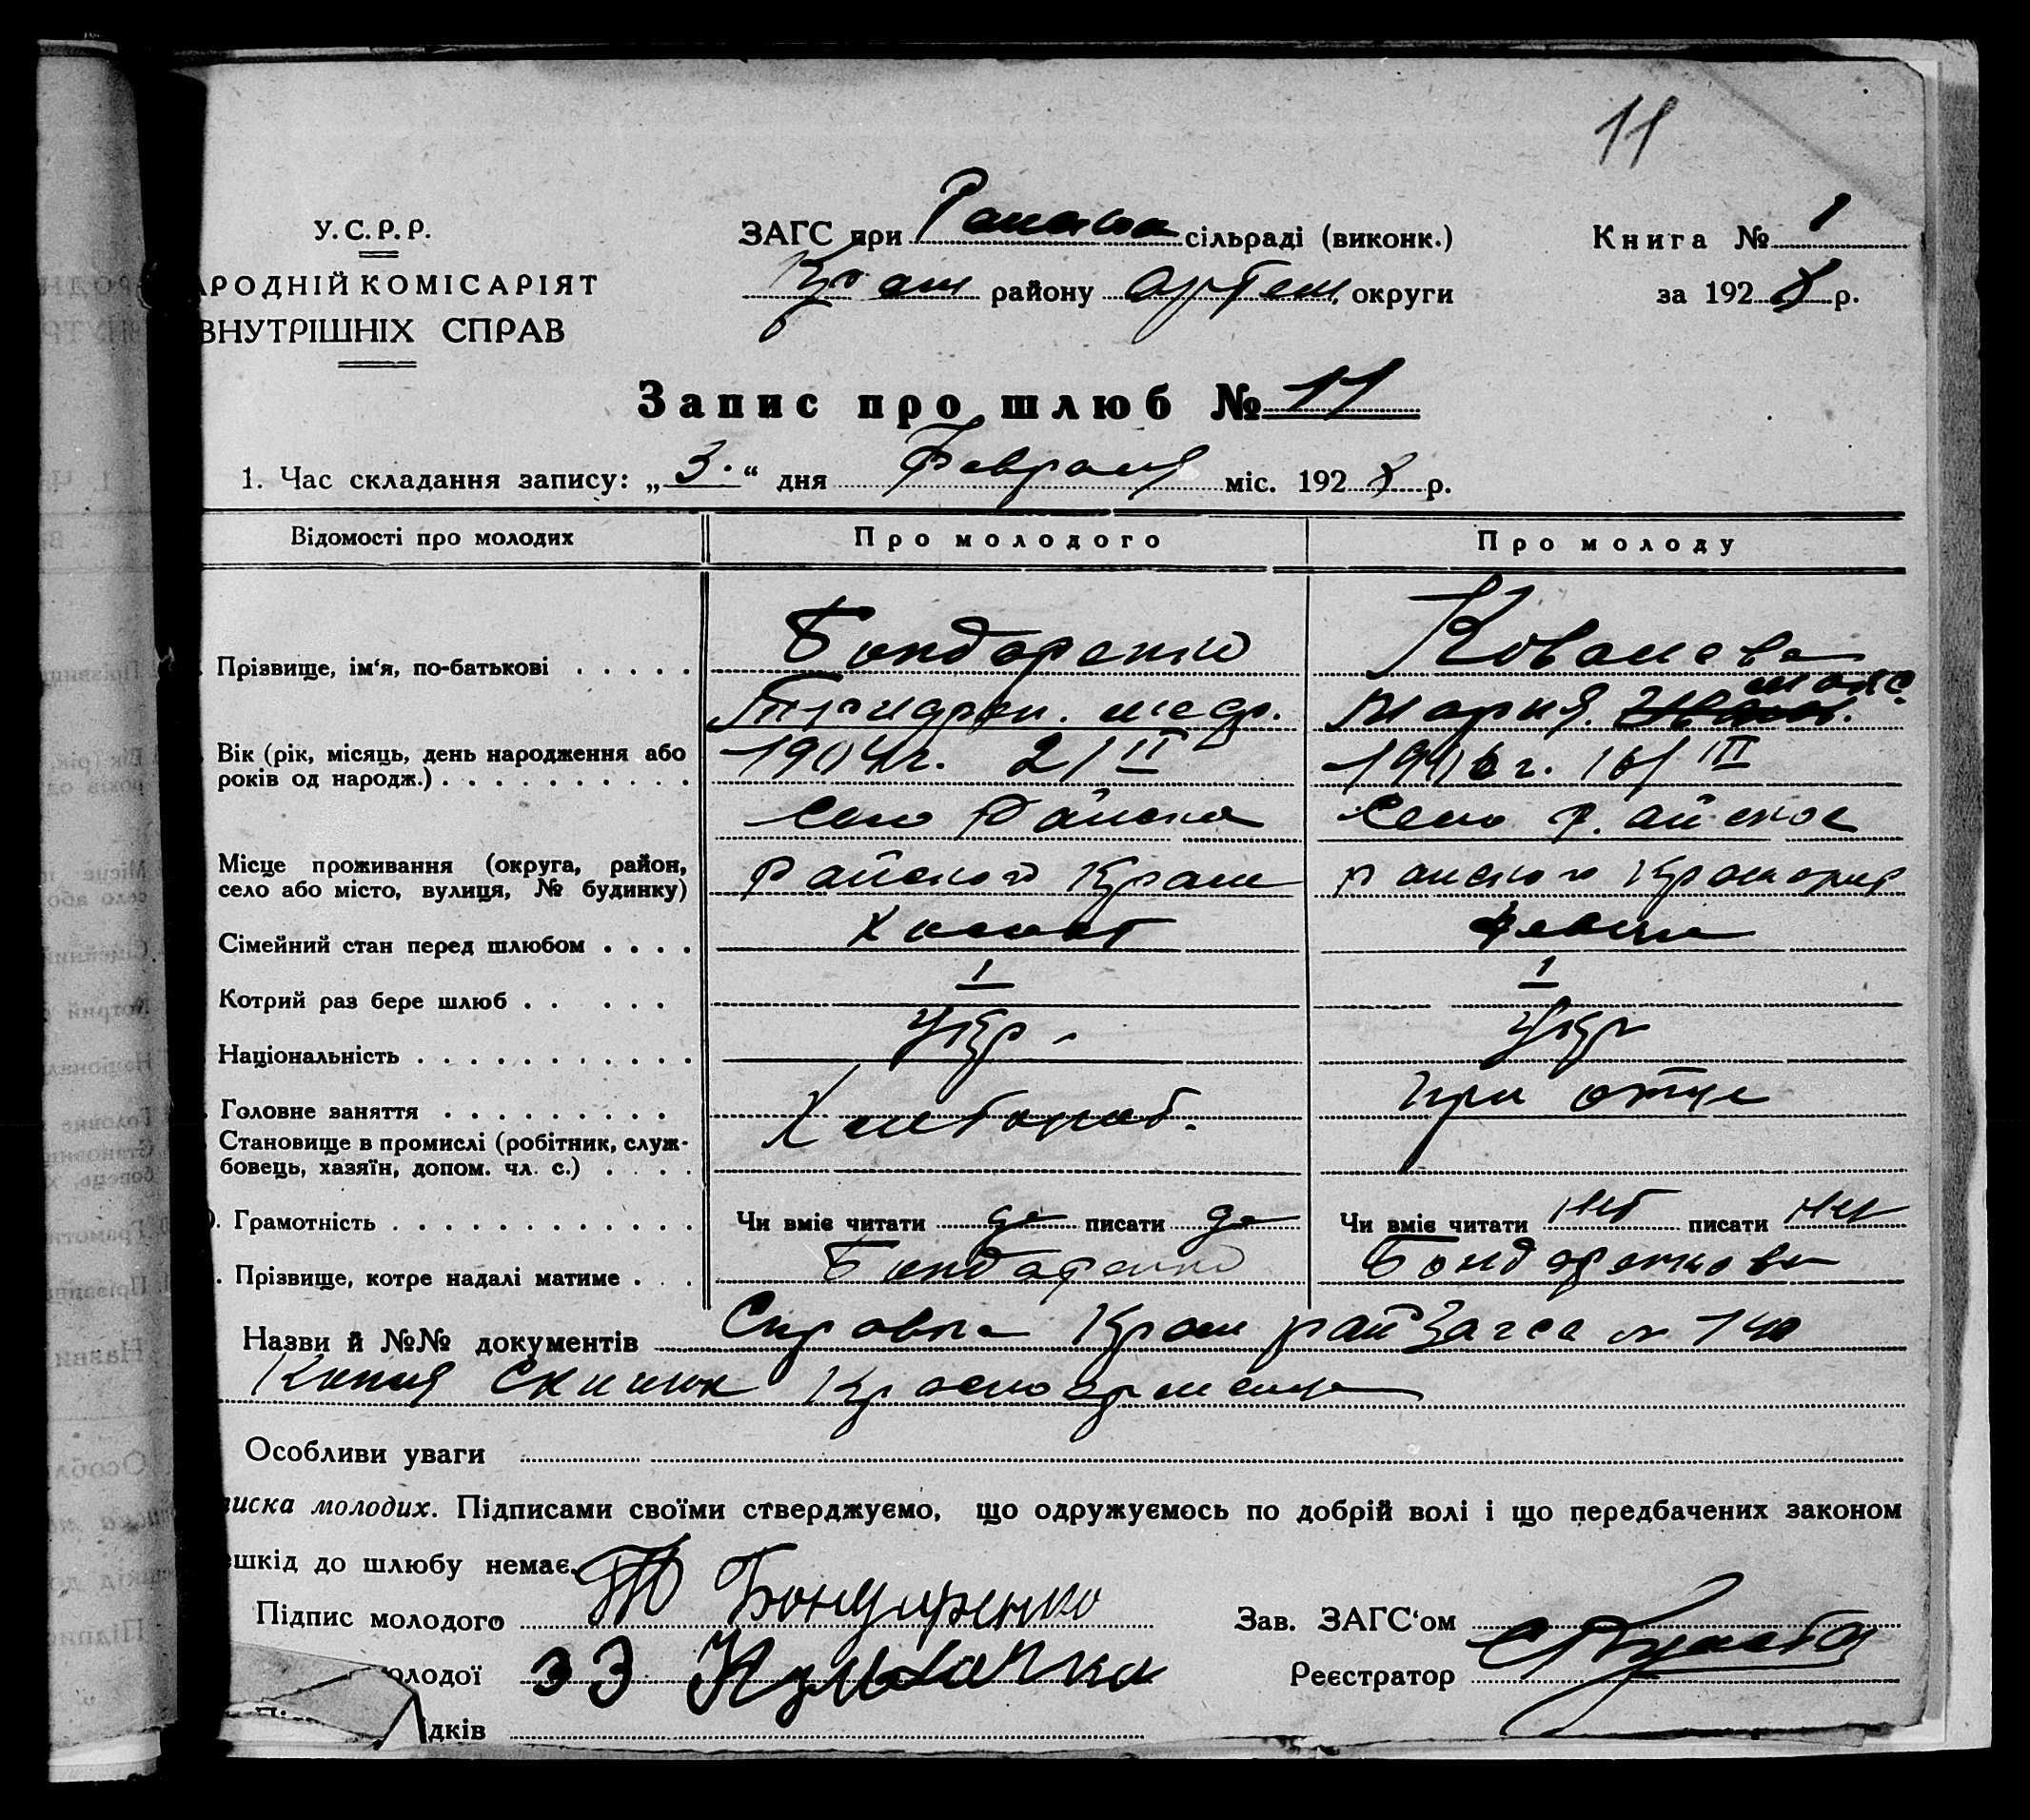 11
У.С.Р.Р.
ЗАГС при сільраді (виконк.)
Книга № 1
АРОДНІЙ КОМІСАРІЯТ
Крам району Артем. округи
за 1928 р.
ВНУТРІШНІХ СПРАВ
Запис про шлюб № 11
1. Час складання запису: „3.“ дня Февраля міс. 1928 р.
Відомості про молодих
Про молодого
Про молоду
Прізвище, ім‘я, по-батькові . . . . .
Бондаренко
Ковалева
Мария
Вік (рік, місяць, день народження або
років од народж.) . . . . . . . . . .
1904 г. 2/II
г. 16/III
Село
Село Райское
Місце проживання (округа, район,
село або місто, вулиця, № будинку)
Райского Крам
Райского Краматор
Сімейний стан перед шлюбом . . . .
Холост
девица
Котрий раз бере шлюб . . . . . .
1
1
Національність . . . . . . . . . . .
Укр.
Укр
Головне заняття . . . . . . . . .
Хлебороб.
при отце
Становище в промислі (робітник, служ-
бовець, хазяїн, допом. чл. с.) . . . .
). Грамотність . . . . . . . . . . . .
Чи вміє читати да писати да
Чи вміє читати нет писати нет
. Прізвище, котре надалі матиме . . .
Бондаренко
Бондаренкова
Назви й №№ документів Справка Крам рай Загса № 140
Копия Красноармейца
Особливи уваги
иска молодих. Підписами своїми стверджуємо, що одружуємось по добрій волі і що передбачених законом
ешкід до шлюбу немає.
Підпис молодого Бондаренко
Зав. ЗАГС‘ом
олодої
Реєстратор
дків